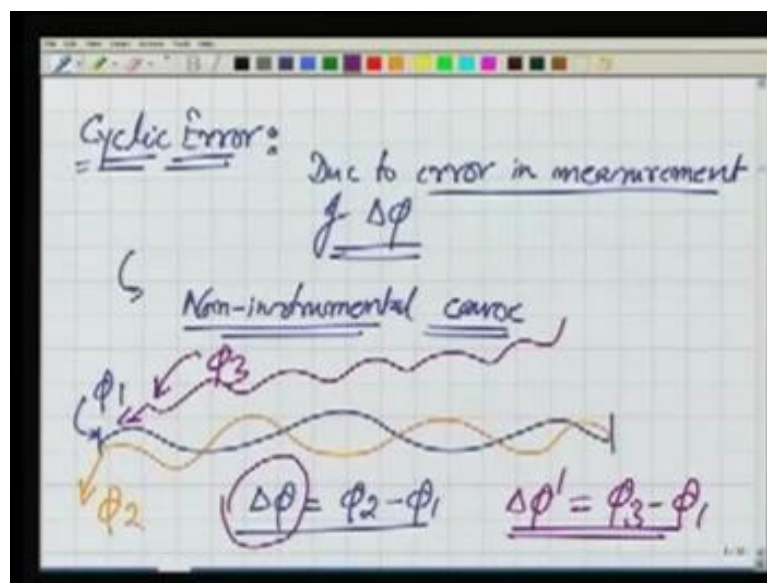 Cyclic Error:
Due to error in measurement
of Δφ
Non-instrumental cause
φ3
φ1
φ2
Δφ = φ2 - φ1
Δφ' = φ3 - φ1